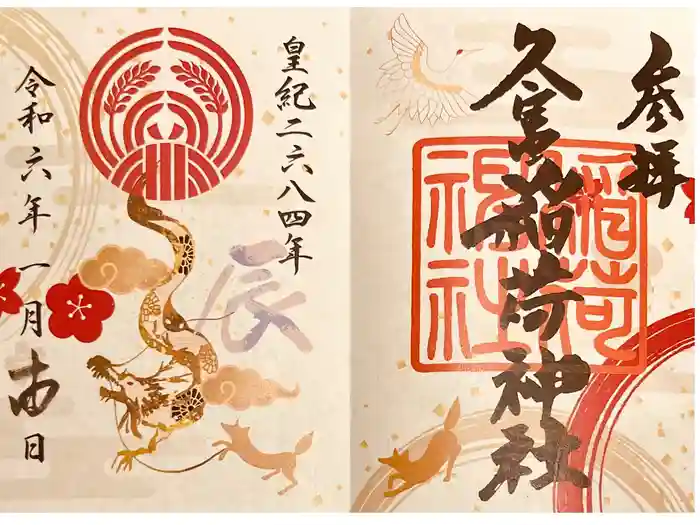 参拝
久富稲荷神社
稲荷
神社
皇紀二六八四年
辰
令和六年一月吉日